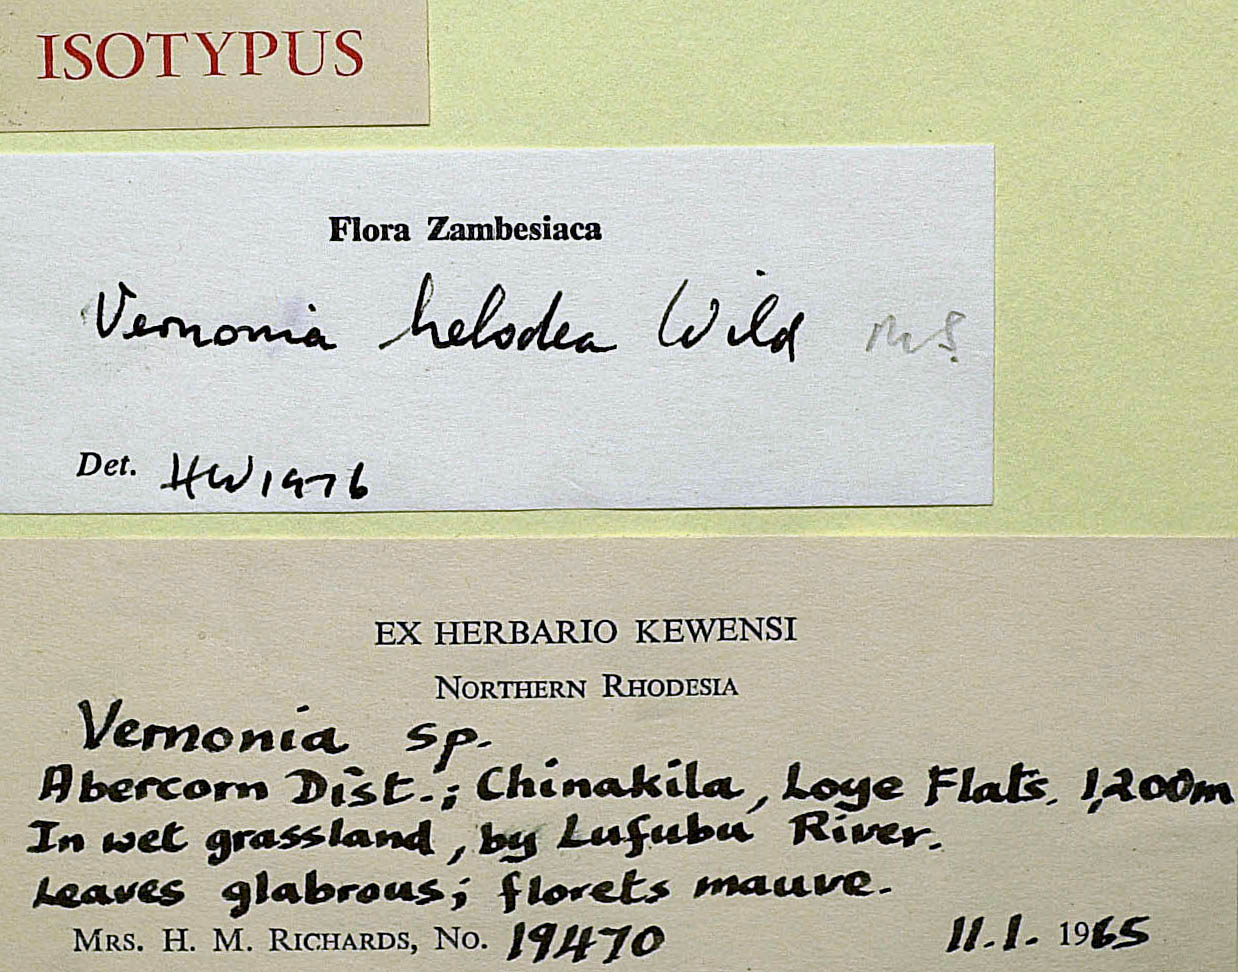 ISOTYPUS
Flora Zambesiaca
Vernonia helodea Wild MS.
Det. HW 1976
EX HERBARIO KEWENSI
NORTHERN RHODESIA
Vernonia sp.
Abercorn Dist.; Chinakila, Loye Flats. 1,200m
In wet grassland, by Lufubu River.
Leaves glabrous; florets mauve.
MRS. H. M. RICHARDS, NO. 19470 11.1. 1965